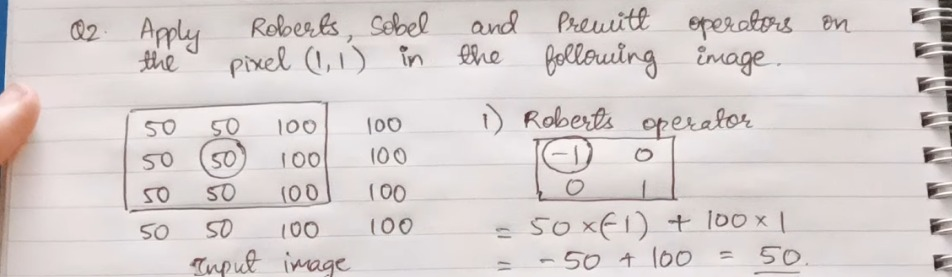 Q2. Apply Roberts, Sobel and Prewitt operators on
the pixel (1,1) in the following image.
50 50 100 100
50 50 100 100
50 50 100 100
50 50 100 100
Input image
i) Roberts operator
-1 0
0 1
= 50 × (-1) + 100 × 1
= -50 + 100 = 50.